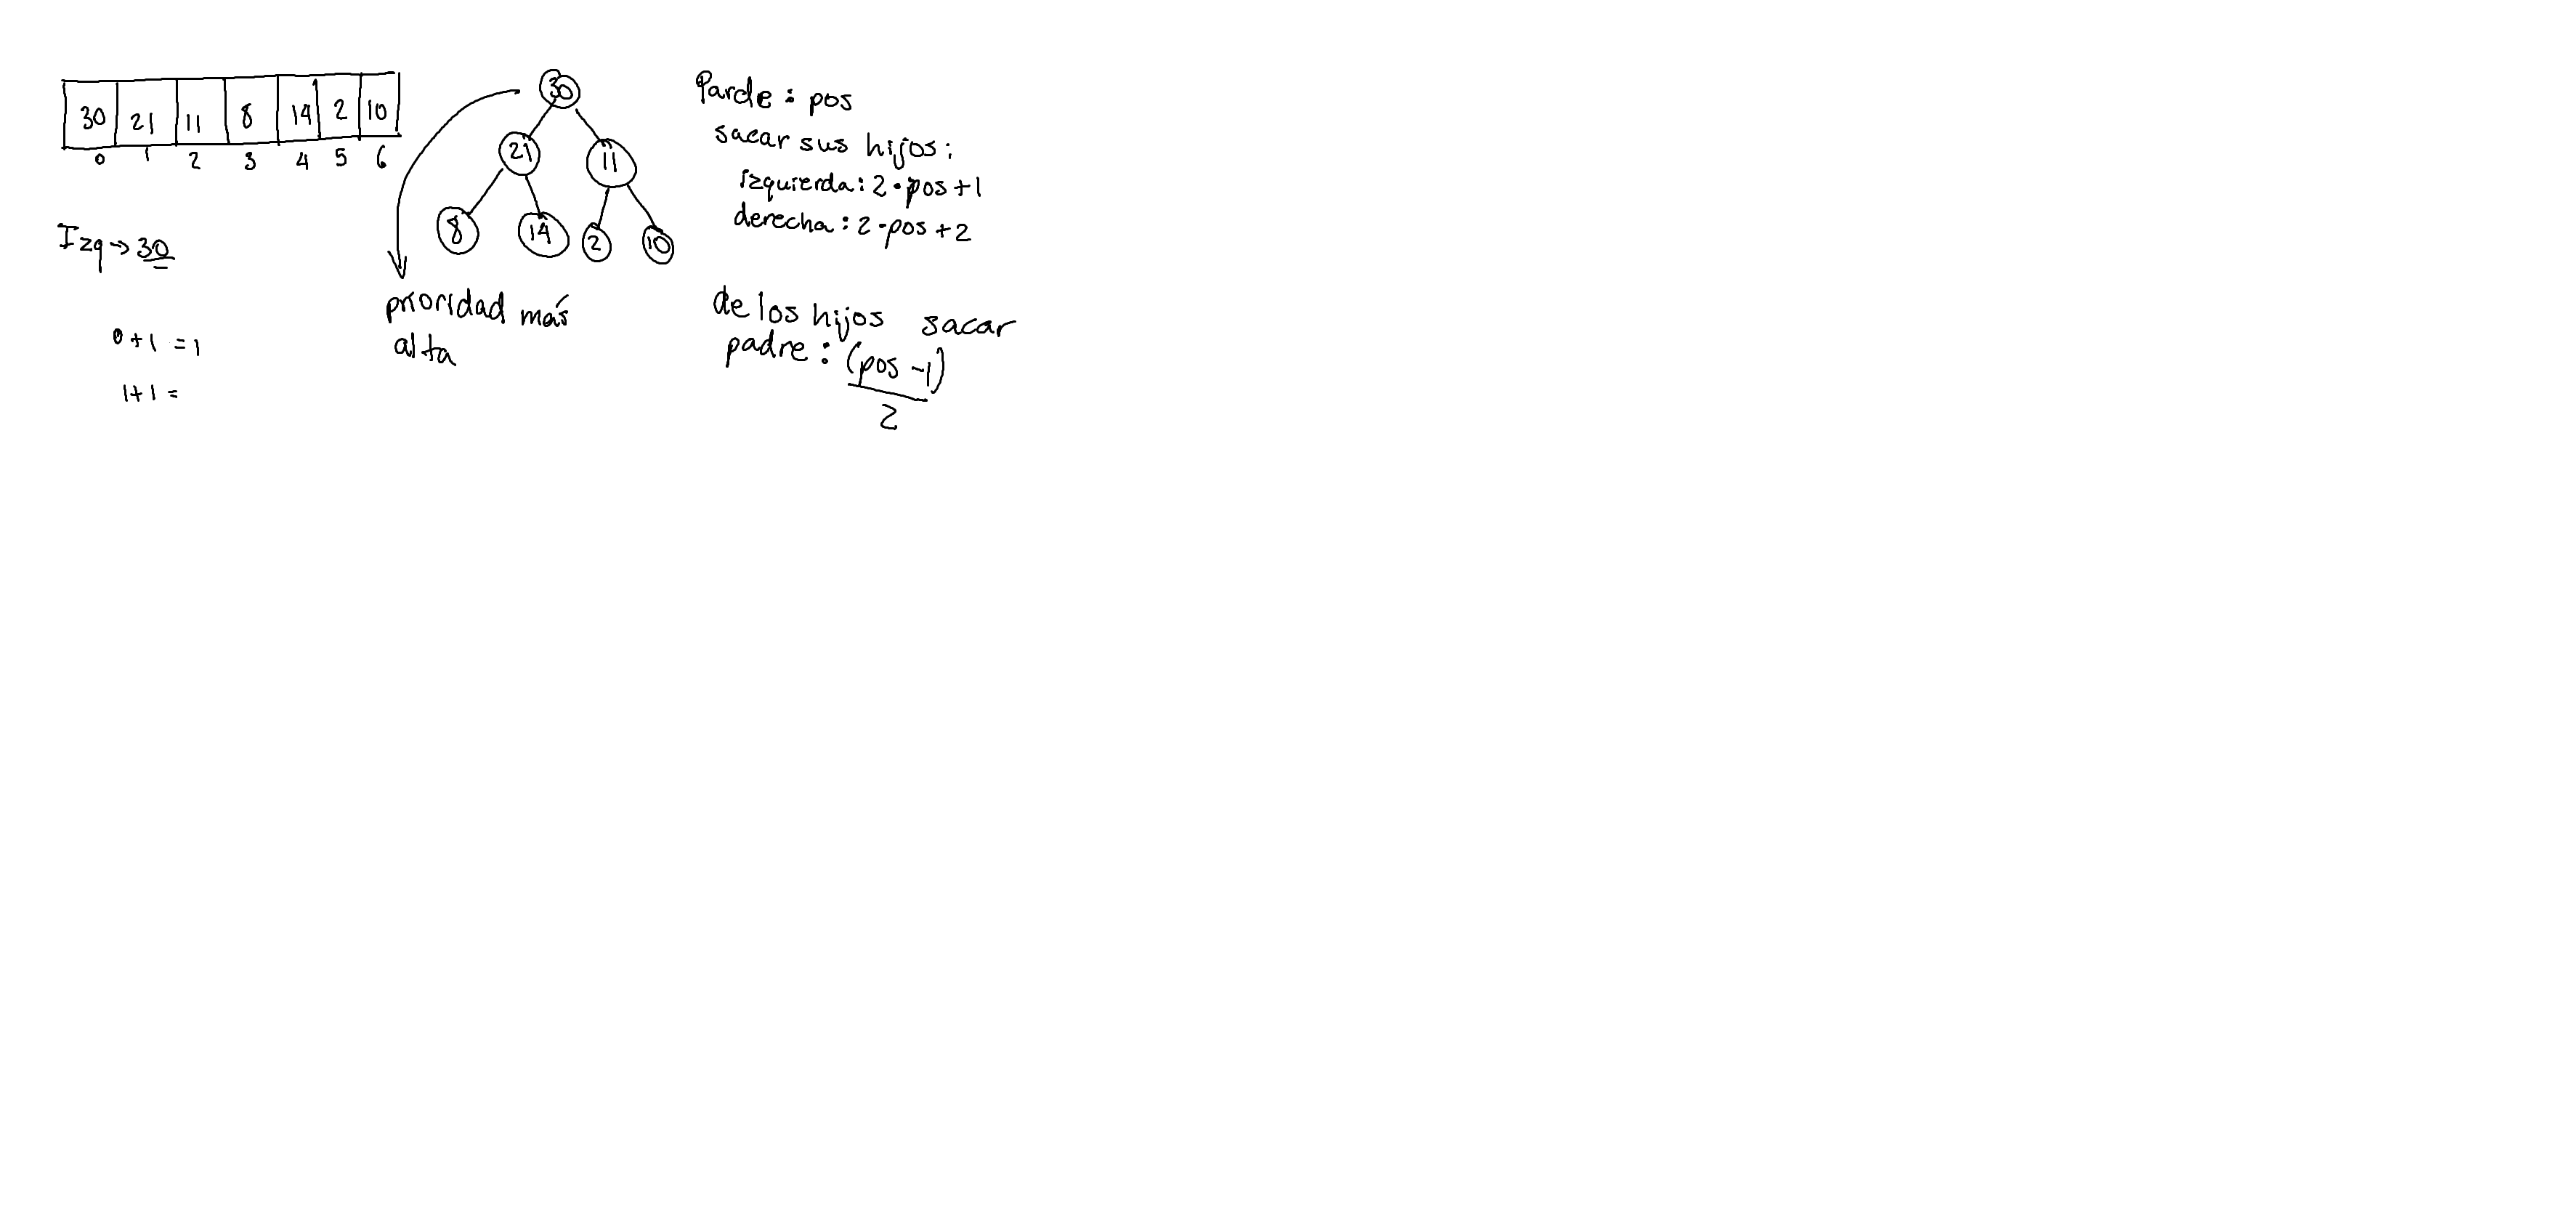 30 21 11 8 14 2 10
0 1 2 3 4 5 6
Izq → 30
0+1 = 1
1+1 =
30
21 11
8 14 2 10
prioridad más
alta
Parde : pos
sacar sus hijos:
izquierda: 2·pos+1
derecha: 2·pos+2
de los hijos sacar
padre: (pos -1)
2